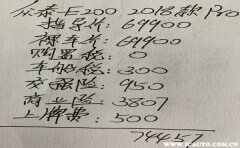 众泰E200 2018款 Pro
指导价:69900
裸车价:69900
购置税:0
车船税:300
交强险:950
商业险:3807
上牌费:500
74457
www.icauto.com.cn